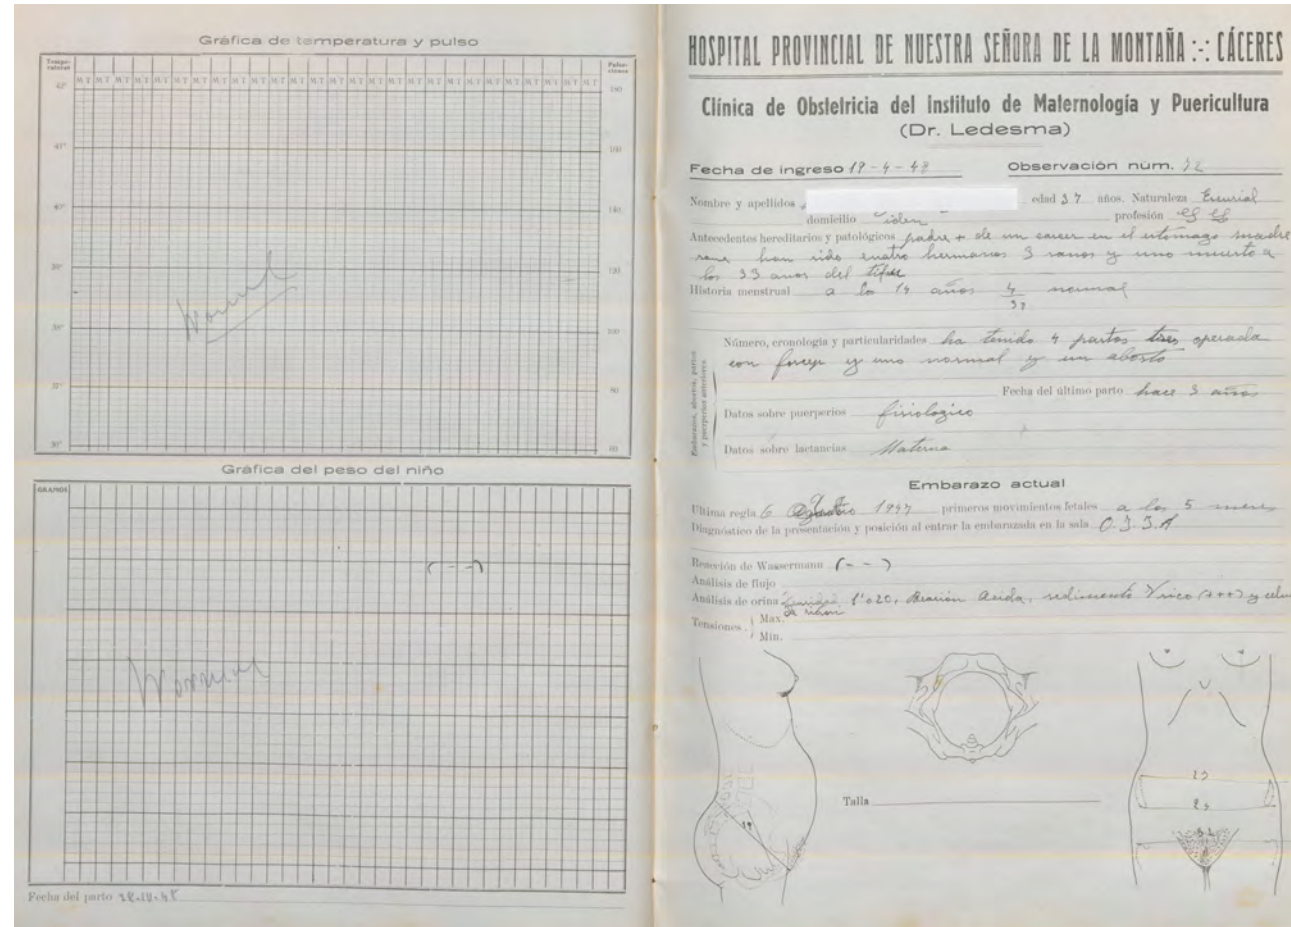 Gráfica de temperatura y pulso
Tempe-
raturas
Pulsa-
ciones
M T M T M T M T M T M T M T M T M T M T M T M T M T M T M T M T
42° 180
41° 160
40° 140
39° 120
38° 100
37° 80
36° 60
Normal
Gráfica del peso del niño
GRAMOS
(- -)
Normal
Fecha del parto
HOSPITAL PROVINCIAL DE NUESTRA SEÑORA DE LA MONTAÑA :-: CÁCERES
Clínica de Obstetricia del Instituto de Maternología y Puericultura
(Dr. Ledesma)
Fecha de ingreso 19-4-48 Observación núm. 32
Nombre y apellidos edad 37 años. Naturaleza
domicilio Iden profesión
Antecedentes hereditarios y patológicos padre + de un cancer en el estomago madre
sana han sido cuatro hermanos 3 sanos y uno muerto a
los 33 años del tifus
Historia menstrual a los 14 años 4 normal
Embarazos, abortos, partos
y puerperios anteriores
Número, cronología y particularidades ha tenido 4 partos tres operada
con forcep y uno normal y un aborto
Fecha del último parto hace 3 años
Datos sobre puerperios fisiologico
Datos sobre lactancias Materna
Embarazo actual
Ultima regla 6 1947 primeros movimientos fetales a los 5 meses
Diagnóstico de la presentación y posición al entrar la embarazada en la sala O.I.I.A
Reacción de Wassermann (- -)
Análisis de flujo
Análisis de orina 1'020, Reacción Acida, sedimento Urico (+++) y
Tensiones. Max.
Min.
Talla
23